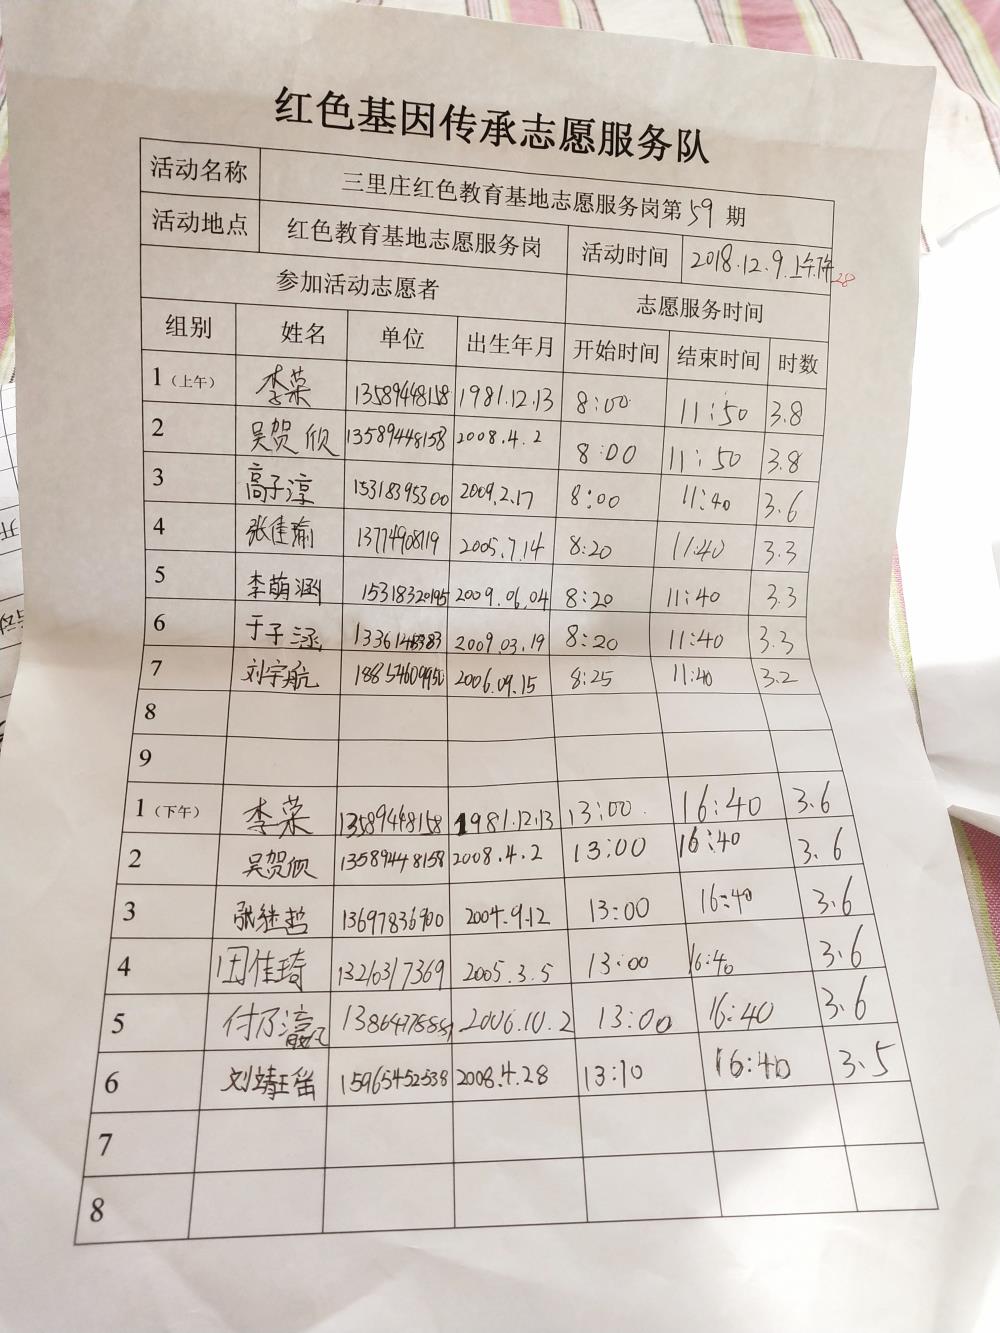 红色基因传承志愿服务队
活动名称 三里庄红色教育基地志愿服务岗第59期
活动地点 红色教育基地志愿服务岗 活动时间 2018.12.9.上午下午 28
参加活动志愿者 志愿服务时间
组别 姓名 单位 出生年月 开始时间 结束时间 时数
1（上午） 李荣 13589448158 1981.12.13 8:00 11:50 3.8
2 吴贺欣 13589448158 2008.4.2 8:00 11:50 3.8
3 高子淳 15318395300 2009.2.17 8:00 11:40 3.6
4 张佳瑜 13774908119 2005.7.14 8:20 11:40 3.3
5 李萌涵 15318320195 2009.06.04 8:20 11:40 3.3
6 于子涵 2009.03.19 8:20 11:40 3.3
7 刘宇航 18854609950 2006.09.15 8:25 11:40 3.2
8
9
1（下午） 李荣 13589448158 1981.12.13 13:00 16:40 3.6
2 吴贺欣 13589448158 2008.4.2 13:00 16:40 3.6
3 张继哲 13697836900 2004.9.12 13:00 16:40 3.6
4 田佳琦 13210317369 2005.3.5 13:00 16:40 3.6
5 付乃瀛 2006.10.2 13:00 16:40 3.6
6 15965452538 2008.4.28 13:10 16:40 3.5
7
8